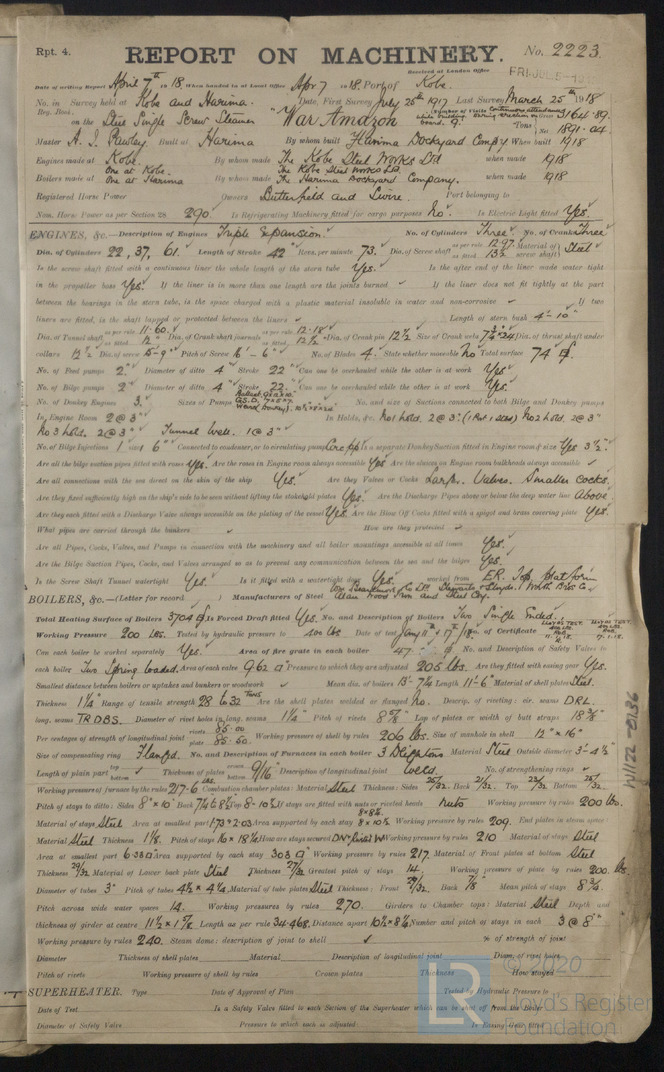 Rpt. 4.
REPORT ON MACHINERY.
No. 2223
Received at London Office
FRI. JUL. 5-19
Date of writing Report April 7th 1918. When handed in at Local Office Apr 7 1918. Port of Kobe.
No. in Survey held at Kobe and Harima. Date, First Survey July 25th 1917 Last Survey March 25th 1918
Reg. Book.
on the Steel Single Screw Steamer "War Amazon
Gross 3164.89
Tons Net 1891.04
Master A. J. Built at Harima By whom built Harima Dockyard Compy When built 1918
Engines made at Kobe. By whom made The Kobe Steel Works Ltd when made 1918
Boilers made at One at Kobe. One at Harima By whom made The Kobe Steel Works Ltd. The Harima Dockyard Company. when made 1918
Registered Horse Power Owners Butterfield and Swire. Port belonging to
Nom. Horse Power as per Section 28 290. Is Refrigerating Machinery fitted for cargo purposes No. Is Electric Light fitted Yes.
ENGINES, &c.—Description of Engines Triple Expansion. No. of Cylinders Three No. of Cranks Three
Dia. of Cylinders 22, 37, 61. Length of Stroke 42" Revs. per minute 73. Dia. of Screw shaft as per rule 12.97 as fitted 13½ Material of screw shaft Steel
Is the screw shaft fitted with a continuous liner the whole length of the stern tube Yes. Is the after end of the liner made water tight
in the propeller boss Yes. If the liner is in more than one length are the joints burned If the liner does not fit tightly at the part
between the bearings in the stern tube, is the space charged with a plastic material insoluble in water and non-corrosive If two
liners are fitted, is the shaft lapped or protected between the liners Length of stern bush 4'-10"
Dia. of Tunnel shaft as per rule 11.60 as fitted 12" Dia. of Crank shaft journals as per rule 12.18 as fitted 12½ Dia. of Crank pin 12½ Size of Crank webs 7¾ x 24 Dia. of thrust shaft under
collars 12½ Dia. of screw 15-9" Pitch of Screw 16'-6" No. of Blades 4. State whether moveable No Total surface 74
No. of Feed pumps 2 Diameter of ditto 4" Stroke 22" Can one be overhauled while the other is at work Yes
No. of Bilge pumps 2 Diameter of ditto 4" Stroke 22 Can one be overhauled while the other is at work Yes
No. of Donkey Engines 3. Sizes of Pumps No. and size of Suctions connected to both Bilge and Donkey pumps
In Engine Room 2 @ 3" In Holds, &c. No 1 hold. 2 @ 3" No 2 hold. 2 @ 3"
No 3 hold. 2 @ 3" Tunnel Well. 1 @ 3"
No. of Bilge Injections 1 sizes 6" Connected to condenser, or to circulating pump Is a separate Donkey Suction fitted in Engine room & size Yes 3½"
Are all the bilge suction pipes fitted with roses Yes. Are the roses in Engine room always accessible Yes Are the sluices on Engine room bulkheads always accessible
Are all connections with the sea direct on the skin of the ship Yes. Are they Valves or Cocks Large. Valves. Smaller Cocks.
Are they fixed sufficiently high on the ship's side to be seen without lifting the stokehold plates Yes. Are the Discharge Pipes above or below the deep water line Above
Are they each fitted with a Discharge Valve always accessible on the plating of the vessel Yes. Are the Blow Off Cocks fitted with a spigot and brass covering plate Yes.
What pipes are carried through the bunkers How are they protected
Are all Pipes, Cocks, Valves, and Pumps in connection with the machinery and all boiler mountings accessible at all times Yes.
Are the Bilge Suction Pipes, Cocks, and Valves arranged so as to prevent any communication between the sea and the bilges Yes.
Is the Screw Shaft Tunnel watertight Yes. Is it fitted with a watertight door Yes. worked from E.R. Top platform
BOILERS, &c.—(Letter for record ) Manufacturers of Steel
Total Heating Surface of Boilers 3704 Is Forced Draft fitted Yes. No. and Description of Boilers Two Single Ended.
Working Pressure 200 lbs. Tested by hydraulic pressure to 400 lbs Date of test Jany 11th & 17th /18 No. of Certificate
Can each boiler be worked separately Yes. Area of fire grate in each boiler 47. No. and Description of Safety Valves to
each boiler Two Spring loaded. Area of each valve 9.62 Pressure to which they are adjusted 205 lbs. Are they fitted with easing gear Yes.
Smallest distance between boilers or uptakes and bunkers or woodwork Mean dia. of boilers 13'-7¼ Length 11'-6" Material of shell plates Steel.
Thickness 1¼" Range of tensile strength 28 to 32 Tons Are the shell plates welded or flanged No. Descrip. of riveting: cir. seams DRL.
long. seams TRDBS. Diameter of rivet holes in long. seams 1¼" Pitch of rivets 8⅝" Lap of plates or width of butt straps 18⅜"
Per centages of strength of longitudinal joint rivets 85.00 plate 85.50. Working pressure of shell by rules 206 lbs. Size of manhole in shell 12" x 16"
Size of compensating ring Flanged. No. and Description of Furnaces in each boiler 3 Deightons Material Steel Outside diameter 3'-4½"
Length of plain part top bottom Thickness of plates crown bottom 9/16" Description of longitudinal joint Weld. No. of strengthening rings
Working pressure of furnace by the rules 217.6 lbs Combustion chamber plates: Material Steel Thickness: Sides 25/32. Back 21/32. Top 23/32 Bottom 25/32.
Pitch of stays to ditto: Sides 8" x 10" Back Top 8-10½ If stays are fitted with nuts or riveted heads Nuts Working pressure by rules 200 lbs.
Material of stays Steel Area at smallest part 1.73 & 2.03 Area supported by each stay Working pressure by rules 209. End plates in steam space:
Material Steel Thickness 1⅛. Pitch of stays 16 x 18¼ How are stays secured Working pressure by rules 210 Material of stays Steel
Area at smallest part 6.38 Area supported by each stay 303 Working pressure by rules 217. Material of Front plates at bottom Steel
Thickness 29/32 Material of Lower back plate Steel Thickness 27/32 Greatest pitch of stays 14 Working pressure of plate by rules 200. lbs.
Diameter of tubes 3" Pitch of tubes 4½ x 4¼ Material of tube plates Steel Thickness: Front 29/32. Back 7/8 Mean pitch of stays 8¾
Pitch across wide water spaces 14. Working pressures by rules 270. Girders to Chamber tops: Material Steel Depth and
thickness of girder at centre 11½ x 1⅞ Length as per rule 34.468. Distance apart 10½ x 8½ Number and pitch of stays in each 3 @ 8"
Working pressure by rules 240. Steam dome: description of joint to shell % of strength of joint
Diameter Thickness of shell plates Material Description of longitudinal joint Diam. of rivet holes
Pitch of rivets Working pressure of shell by rules Crown plates Thickness How stayed
SUPERHEATER. Type Date of Approval of Plan Tested by Hydraulic Pressure to
Date of Test Is a Safety Valve fitted to each Section of the Superheater which can be shut off from the Boiler
Diameter of Safety Valve Pressure to which each is adjusted Is Easing Gear fitted
W1122-0136
© 2020
Lloyd's Register
Foundation
LR